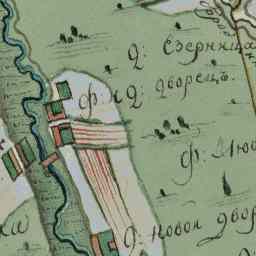 Д: Езерница
ф: и Д: дворецъ.
ф: Лю
Д: новои двор